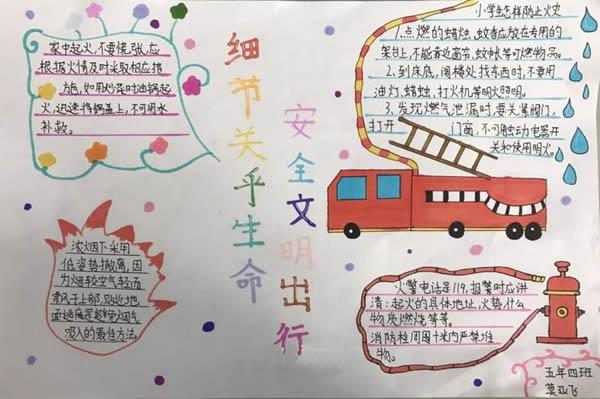 细节关乎生命
安全文明出行
家中起火,不要慌张,应
根据火情及时采取相应措
施,如用炒菜时油锅起
火,迅速将锅盖上,不可用水
补救。
小学生怎样防止火灾
1.点燃的蜡烛、蚊香应放在专用的
架台上,不能靠近窗帘、蚊帐等可燃物品。
2、到床底、阁楼处找东西时,不要用
油灯、蜡烛、打火机等明火照明。
3、发现燃气泄漏时,要关紧阀门,
打开门窗,不可触动电器开
关和使用明火。
浓烟下采用
低姿势撤离,因
为烟较空气轻而
飘于上部,贴近地
面逃离是避免烟气
吸入的最佳方法。
火警电话是119,报警时应讲
清:起火的具体地址,火势什么
物质燃烧等等。
消防栓周围十米内严禁堆
物。
五年四班
莫亚飞